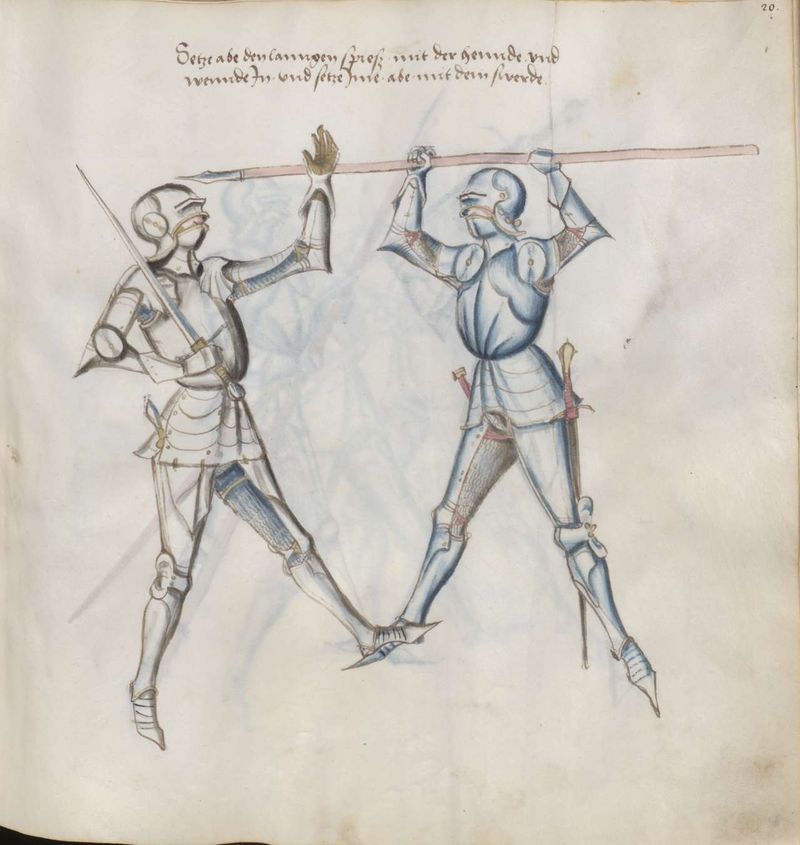 20.
Setze abe den lanngen spiesz mit der hennde vnd
wennde In vnd setze Inne abe mit dem swerde